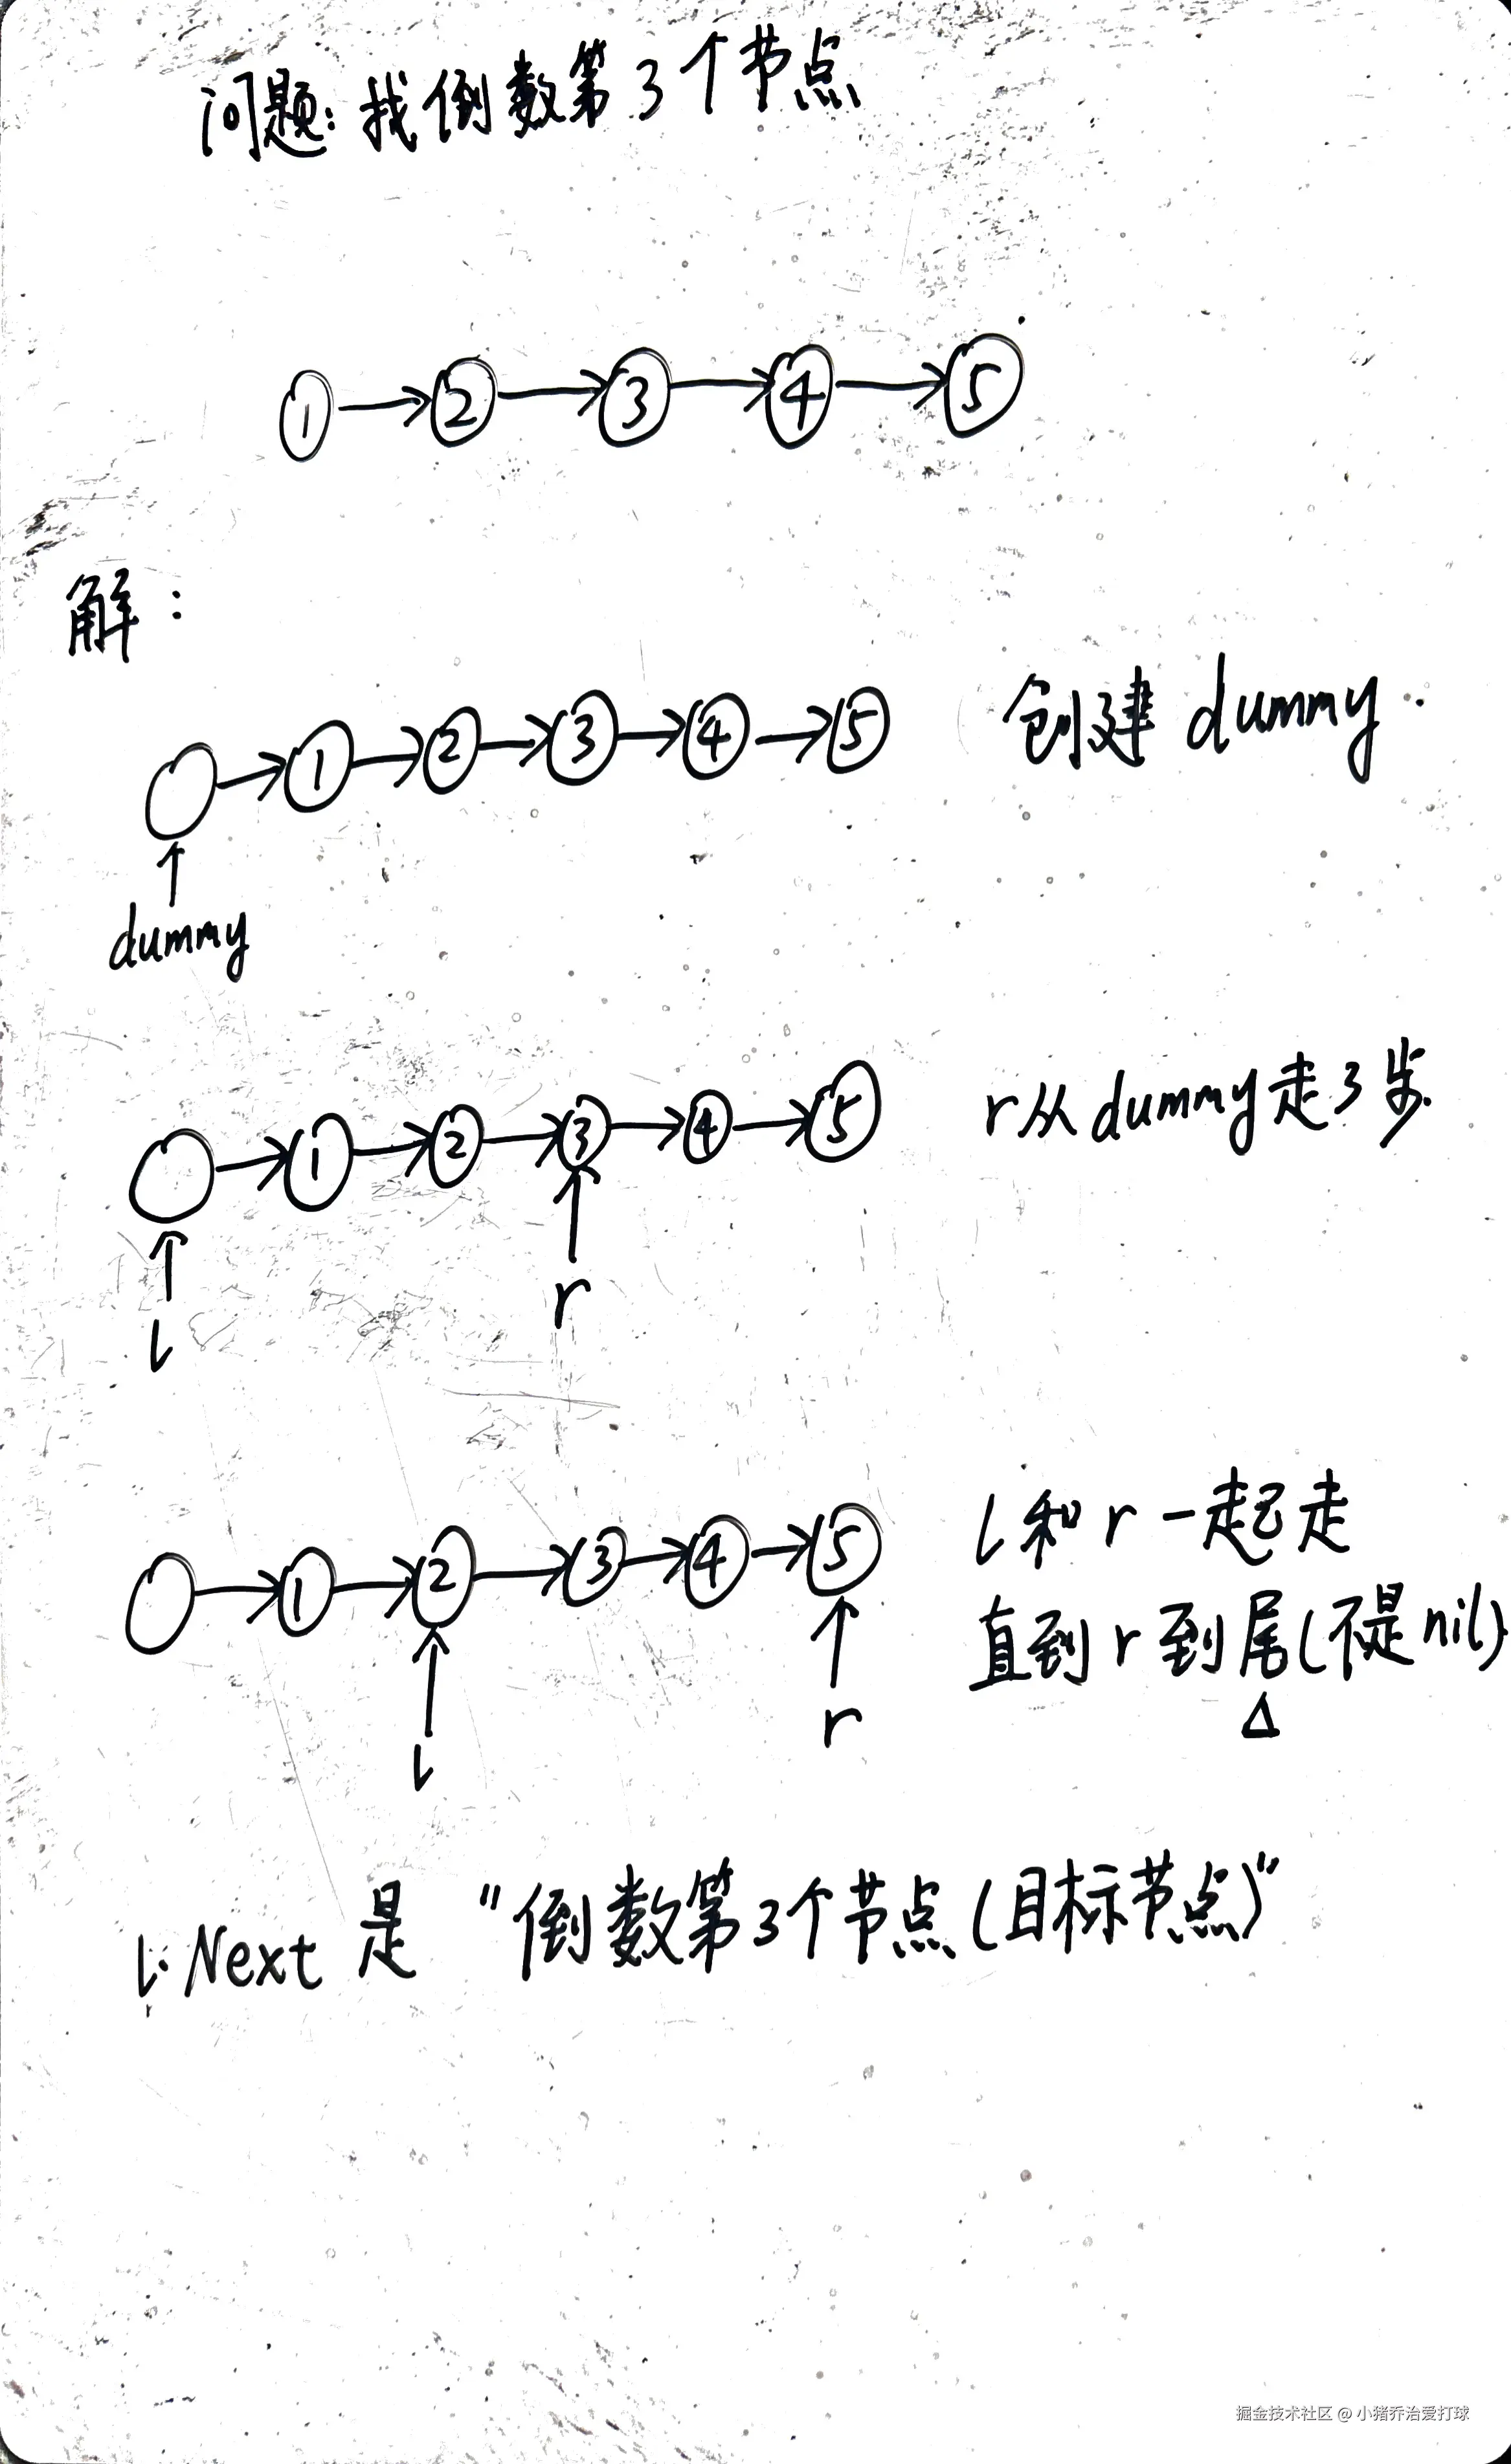 问题:找倒数第3个节点
1 2 3 4 5
解:
1 2 3 4 5
创建 dummy
dummy
1 2 3 4 5
r从dummy走3步
l
r
1 2 3 4 5
l和r一起走
直到r到尾(不是nil)
l
r
l.Next是"倒数第3个节点(目标节点)"
掘金技术社区 @ 小猪乔治爱打球